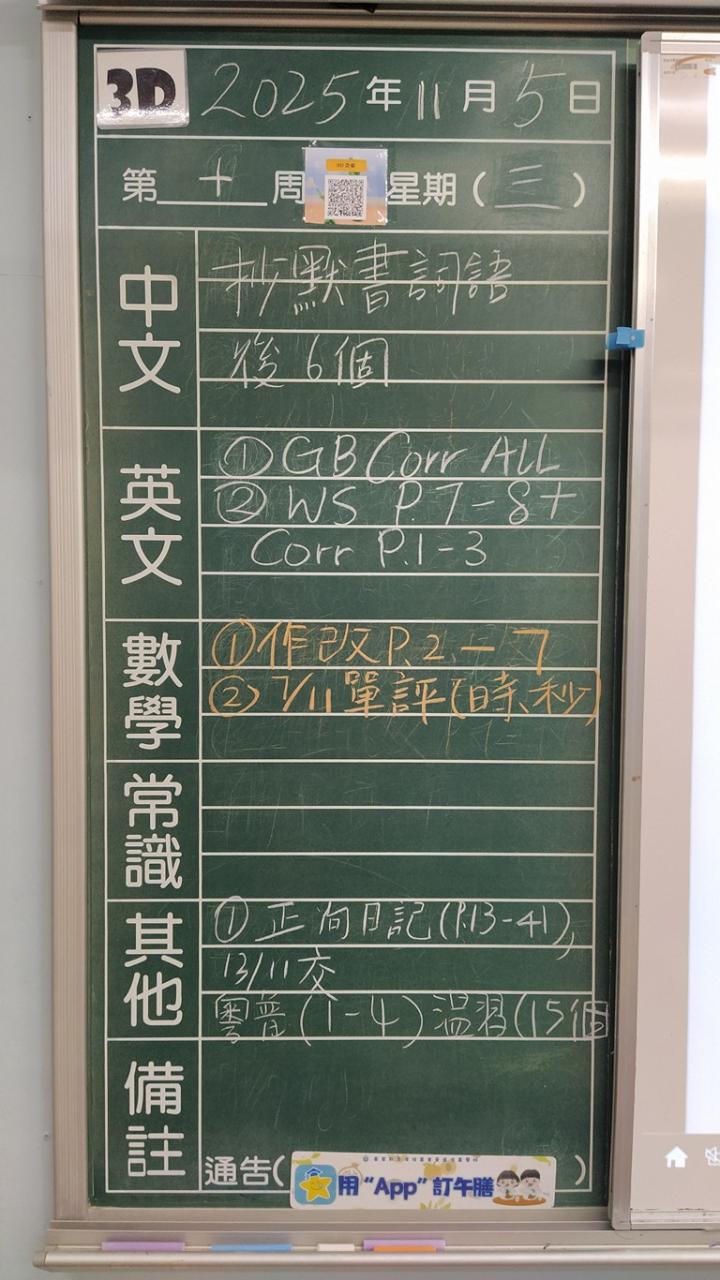 3D 2025年11月5日
第十周 星期(三)
中文
抄默書詞語
後6個
英文
①GB Corr ALL
②WS P.7-8+
Corr P.1-3
數學
①作改P.2-7
②7/11單評(時、秒)
常識
其他
①正向日記(P.13-41),
13/11交
粵普(1-4)溫習(15個
備註
通告( 用“App”訂午膳 )